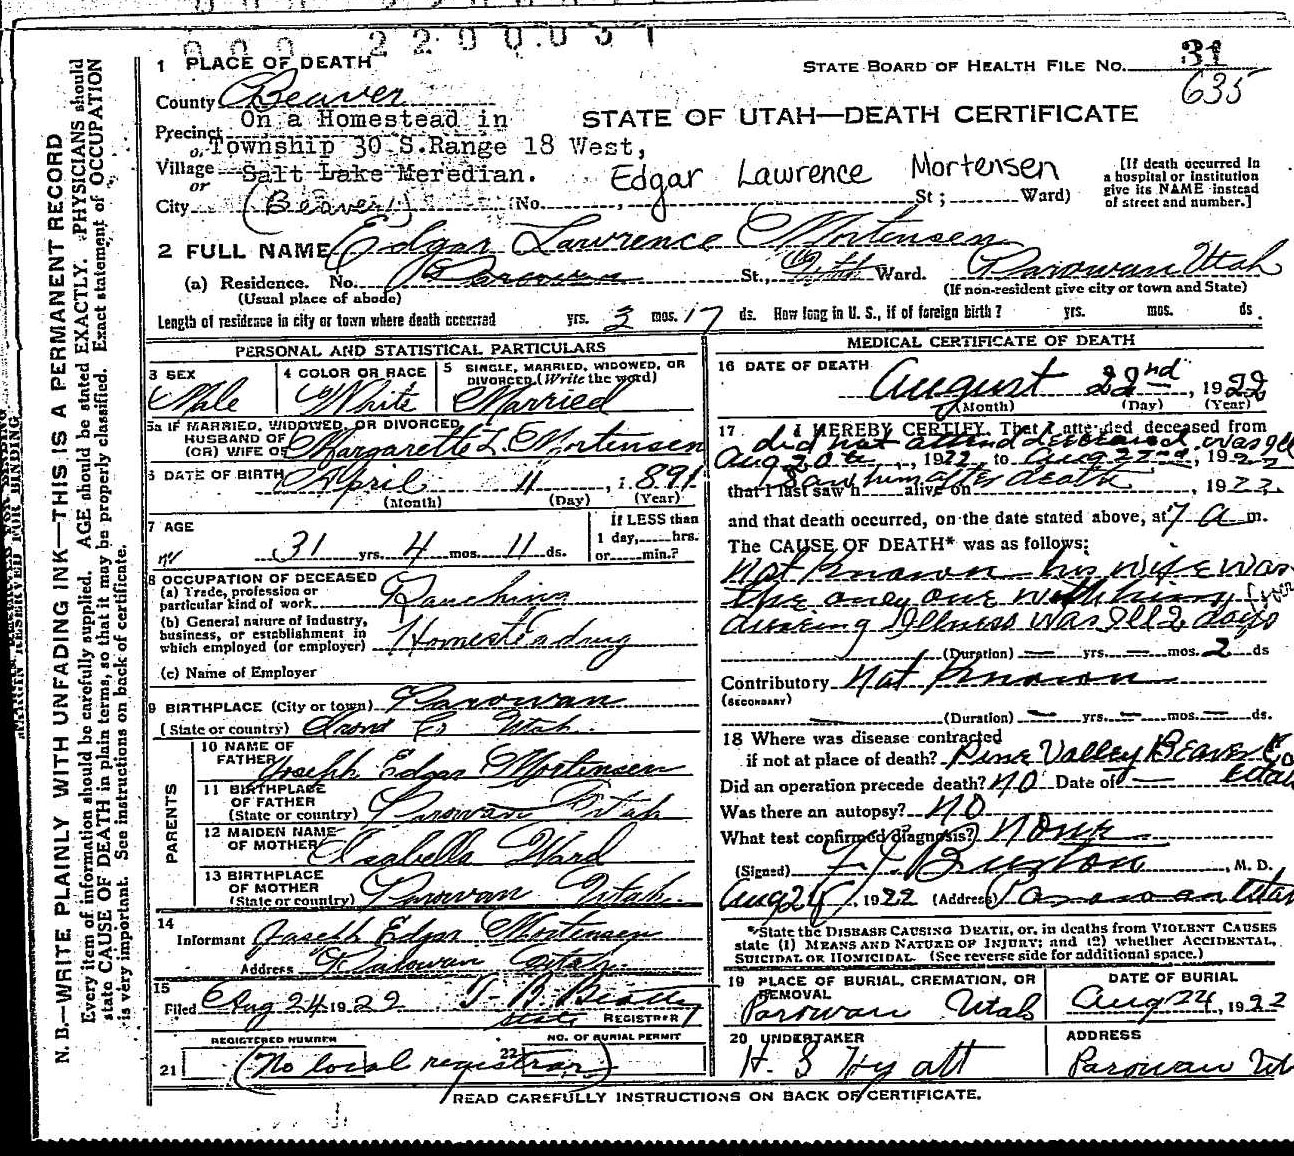 000 2200.031
1 PLACE OF DEATH
STATE BOARD OF HEALTH FILE NO. 31
635
County Beaver
STATE OF UTAH—DEATH CERTIFICATE
On a Homestead in
Precinct
or Township 30 S.Range 18 West,
Village Salt Lake Meredian.
or
City (Beaver) (No. Edgar Lawrence Mortensen St; Ward)
[If death occurred in
a hospital or institution
give its NAME instead
of street and number.]
2 FULL NAME Edgar Lawrence Mortensen
(a) Residence. No. Parowan St., Ward. Parowan Utah
(Usual place of abode)
(If non-resident give city or town and State)
Length of residence in city or town where death occurred yrs. 3 mos. 17 ds. How long in U. S., if of foreign birth? yrs. mos. ds.
PERSONAL AND STATISTICAL PARTICULARS
3 SEX
Male
4 COLOR OR RACE
White
5 SINGLE, MARRIED, WIDOWED, OR
DIVORCED (Write the word)
Married
5a IF MARRIED, WIDOWED, OR DIVORCED
HUSBAND OF
(OR) WIFE OF Margarette L. Mortensen
6 DATE OF BIRTH April 11, 1891
(Month) (Day) (Year)
7 AGE
31 yrs. 4 mos. 11 ds.
If LESS than
1 day, hrs.
or min.?
8 OCCUPATION OF DECEASED
(a) Trade, profession or
particular kind of work Ranching
(b) General nature of industry,
business, or establishment in
which employed (or employer) Homesteading
(c) Name of Employer
9 BIRTHPLACE (City or town) Parowan
(State or country) Iron Co Utah.
PARENTS
10 NAME OF
FATHER Joseph Edgar Mortensen
11 BIRTHPLACE
OF FATHER
(State or country) Parowan Utah
12 MAIDEN NAME
OF MOTHER Isabella Ward
13 BIRTHPLACE
OF MOTHER
(State or country) Parowan Utah.
14
Informant Joseph Edgar Mortensen
Address Parowan Utah.
15
Filed Aug 24 1922 T. B. Beatty
State REGISTRAR
REGISTERED NUMBER
NO. OF BURIAL PERMIT
21 22
(No local registrar)
MEDICAL CERTIFICATE OF DEATH
16 DATE OF DEATH
August 22nd, 1922
(Month) (Day) (Year)
17 I HEREBY CERTIFY, That I attended deceased from
did not attend deceased. was ill
Aug 20th, 1922 to Aug 22nd, 1922
Saw him after death
that I last saw h alive on , 1922
and that death occurred, on the date stated above, at 7 a m.
The CAUSE OF DEATH* was as follows:
Not Known his wife was
the only one with him
during Illness was Ill 2 days
(Duration) — yrs. — mos. 2 ds
Contributory Not Known
(SECONDARY)
(Duration) — yrs. — mos. — ds.
18 Where was disease contracted
if not at place of death? Pine Valley Beaver Co
Utah
Did an operation precede death? NO Date of —
Was there an autopsy? NO
What test confirmed diagnosis? None
(Signed) Burton, M. D.
Aug 24, 1922 (Address) Parowan Utah
*State the DISEASE CAUSING DEATH, or, in deaths from VIOLENT CAUSES
state (1) MEANS AND NATURE OF INJURY; and (2) whether ACCIDENTAL,
SUICIDAL OR HOMICIDAL. (See reverse side for additional space.)
19 PLACE OF BURIAL, CREMATION, OR
REMOVAL
Parowan Utah
DATE OF BURIAL
Aug 24, 1922
20 UNDERTAKER
H. S Hyatt
ADDRESS
Parowan Ut
READ CAREFULLY INSTRUCTIONS ON BACK OF CERTIFICATE.
MARGIN RESERVED FOR BINDING
N. B.—WRITE PLAINLY WITH UNFADING INK—THIS IS A PERMANENT RECORD
Every item of information should be carefully supplied. AGE should be stated EXACTLY. PHYSICIANS should
state CAUSE OF DEATH in plain terms, so that it may be properly classified. Exact statement of OCCUPATION
is very important. See instructions on back of certificate.